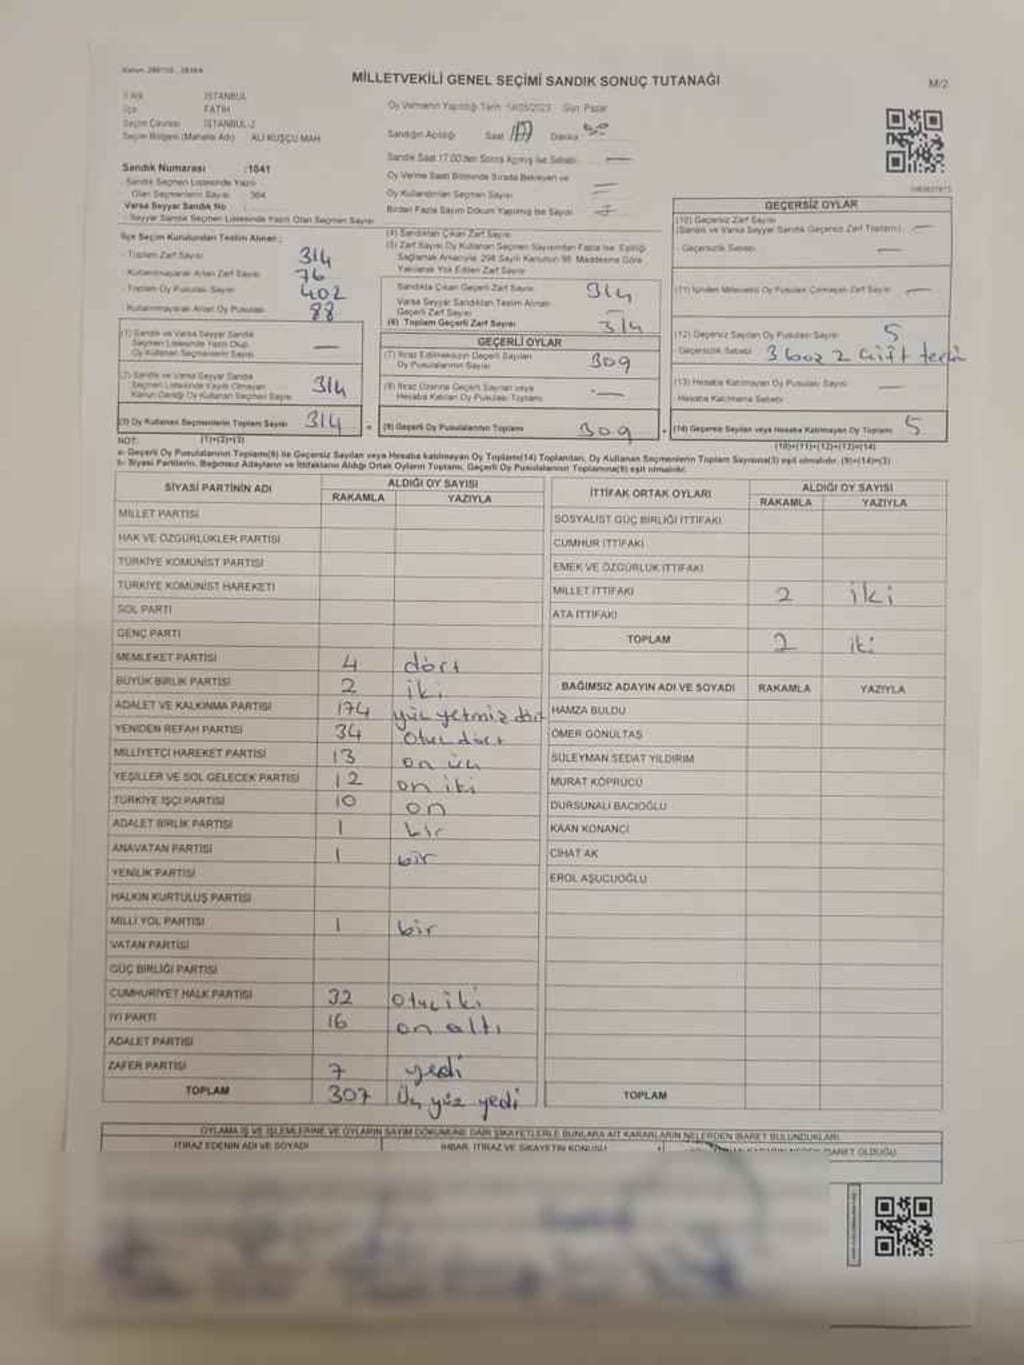 MİLLETVEKİLİ GENEL SEÇİMİ SANDIK SONUÇ TUTANAĞI
M/2
İSTANBUL
FATİH
İSTANBUL-2
Seçim Bölgesi (Mahalle Adı) ALİ KUŞÇU MAH
Oy Vermenin Yapıldığı Tarih 14/05/2023 Gün Pazar
Sandığın Açıldığı Saat Dakika
Sandık Saat 17.00'den Sonra Açılmış İse Sebebi —
Oy Verme Saati Bitiminde Sırada Bekleyen ve
Oy Kullandırılan Seçmen Sayısı
Birden Fazla Sayım Döküm Yapılmış İse Sayısı
Sandık Numarası :1041
- Sandık Seçmen Listesinde Yazılı
Olan Seçmenlerin Sayısı 304
Varsa Seyyar Sandık No :
- Seyyar Sandık Seçmen Listesinde Yazılı Olan Seçmen Sayısı
İlçe Seçim Kurulundan Teslim Alınan :
- Toplam Zarf Sayısı 314
- Kullanılmayarak Artan Zarf Sayısı 76
- Toplam Oy Pusulası Sayısı 402
- Kullanılmayarak Artan Oy Pusulası 88
(1) Sandık ve Varsa Seyyar Sandık
Seçmen Listesinde Yazılı Olup
Oy Kullanan Seçmenlerin Sayısı —
(2) Sandık ve Varsa Seyyar Sandık
Seçmen Listesinde Yazılı Olmayan
Kanun Gereği Oy Kullanan Seçmenlerin Sayısı 314
(3) Oy Kullanan Seçmenlerin Toplam Sayısı 314
(1)+(2)=(3)
(4) Sandıktan Çıkan Zarf Sayısı
(5) Zarf Sayısı Oy Kullanan Seçmen Sayısından Fazla İse Eşitliği
Sağlamak Amacıyla 298 Sayılı Kanunun 98. Maddesine Göre
Yakılarak Yok Edilen Zarf Sayısı
Sandıkta Çıkan Geçerli Zarf Sayısı 314
Varsa Seyyar Sandıktan Teslim Alınan
Geçerli Zarf Sayısı
(6) Toplam Geçerli Zarf Sayısı 314
GEÇERLİ OYLAR
(7) İtiraz Edilmeksizin Geçerli Sayılan
Oy Pusulalarının Sayısı 309
(8) İtiraz Üzerine Geçerli Sayılan veya
Hesaba Katılan Oy Pusulası Toplamı —
(9) Geçerli Oy Pusulalarının Toplamı 309
GEÇERSİZ OYLAR
(10) Geçersiz Zarf Sayısı
(Sandık ve Varsa Seyyar Sandık Geçersiz Zarf Toplamı) —
- Geçersizlik Sebebi —
(11) İçinden Milletvekili Oy Pusulası Çıkmayan Zarf Sayısı —
(12) Geçersiz Sayılan Oy Pusulası Sayısı 5
- Geçersizlik Sebebi 3 boş 2 çift tercih
(13) Hesaba Katılmayan Oy Pusulası Sayısı —
- Hesaba Katılmama Sebebi
(14) Geçersiz Sayılan veya Hesaba Katılmayan Oy Toplamı 5
(10)+(11)+(12)+(13)=(14)
NOT:
a- Geçerli Oy Pusulalarının Toplamı(9) ile Geçersiz Sayılan veya Hesaba katılmayan Oy Toplamı(14) Toplamları, Oy Kullanan Seçmenlerin Toplam Sayısına(3) eşit olmalıdır. (9)+(14)=(3)
b- Siyasi Partilerin, Bağımsız Adayların ve İttifakların Aldığı Ortak Oyların Toplamı, Geçerli Oy Pusulalarının Toplamına(9) eşit olmalıdır.
SİYASİ PARTİNİN ADI ALDIĞI OY SAYISI
RAKAMLA YAZIYLA
MİLLET PARTİSİ
HAK VE ÖZGÜRLÜKLER PARTİSİ
TÜRKİYE KOMÜNİST PARTİSİ
TÜRKİYE KOMÜNİST HAREKETİ
SOL PARTİ
GENÇ PARTİ
MEMLEKET PARTİSİ 4 dört
BÜYÜK BİRLİK PARTİSİ 2 iki
ADALET VE KALKINMA PARTİSİ 174 yüz yetmiz dört
YENİDEN REFAH PARTİSİ 34 otuz dört
MİLLİYETÇİ HAREKET PARTİSİ 13 on üç
YEŞİLLER VE SOL GELECEK PARTİSİ 12 on iki
TÜRKİYE İŞÇİ PARTİSİ 10 on
ADALET BİRLİK PARTİSİ 1 bir
ANAVATAN PARTİSİ 1 bir
YENİLİK PARTİSİ
HALKIN KURTULUŞ PARTİSİ
MİLLİ YOL PARTİSİ 1 bir
VATAN PARTİSİ
GÜÇ BİRLİĞİ PARTİSİ
CUMHURİYET HALK PARTİSİ 32 otuz iki
İYİ PARTİ 16 on altı
ADALET PARTİSİ
ZAFER PARTİSİ 7 yedi
TOPLAM 307 Üç yüz yedi
İTTİFAK ORTAK OYLARI ALDIĞI OY SAYISI
RAKAMLA YAZIYLA
SOSYALİST GÜÇ BİRLİĞİ İTTİFAKI
CUMHUR İTTİFAKI
EMEK VE ÖZGÜRLÜK İTTİFAKI
MİLLET İTTİFAKI 2 iki
ATA İTTİFAKI
TOPLAM 2 iki
BAĞIMSIZ ADAYIN ADI VE SOYADI RAKAMLA YAZIYLA
HAMZA BULDU
ÖMER GÖNÜLTAŞ
SÜLEYMAN SEDAT YILDIRIM
MURAT KÖPRÜCÜ
DURSUNALİ BACIOĞLU
KAAN KONANCI
CİHAT AK
EROL AŞUCUOĞLU
TOPLAM
OYLAMA İŞ VE İŞLEMLERİNE VE OYLARIN SAYIM DÖKÜMÜNE DAİR ŞİKAYETLERLE BUNLARA AİT KARARLARIN NELERDEN İBARET BULUNDUKLARI
İTİRAZ EDENİN ADI VE SOYADI İHBAR, İTİRAZ VE ŞİKAYETİN KONUSU